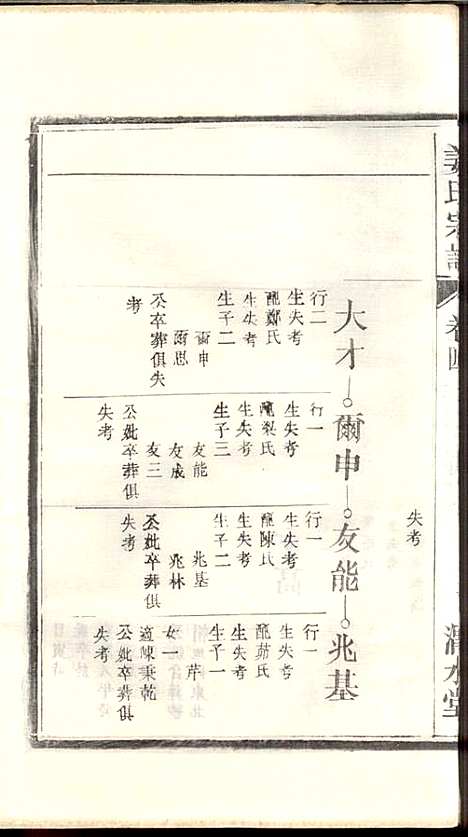 姜氏宗譜
卷四
渭水堂
失考
大才—○爾申—○友能—○兆基
行二
生失考
配鄭氏
生失考
生子二
爾申
爾思
公卒葬俱失
考
行一
生失考
配梨氏
生失考
生子三
友能
友成
友三
公妣卒葬俱
失考
行一
生失考
配陳氏
生失考
生子二
兆基
兆林
公妣卒葬俱
失考
行一
生失考
生失考
生子一
芹
女一
適陳秉乾
公妣卒葬俱
失考